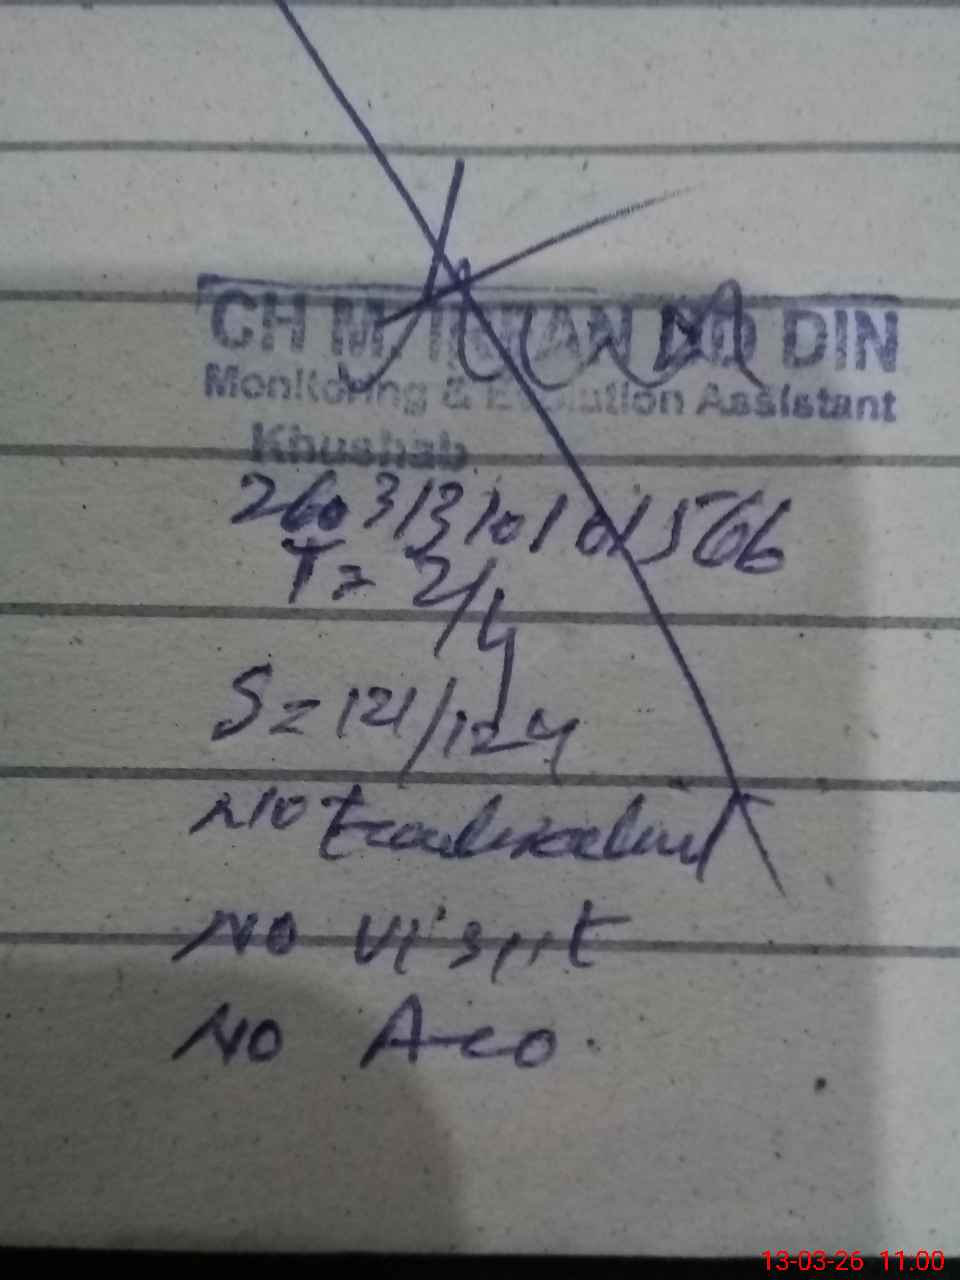 CH M. IMRAN UD DIN
Monitoring & Evolution Assistant
Khushab
260313101 01566
T = 2/4
S = 121/124
NO
NO visit
NO AEO.
13-03-26 11.00